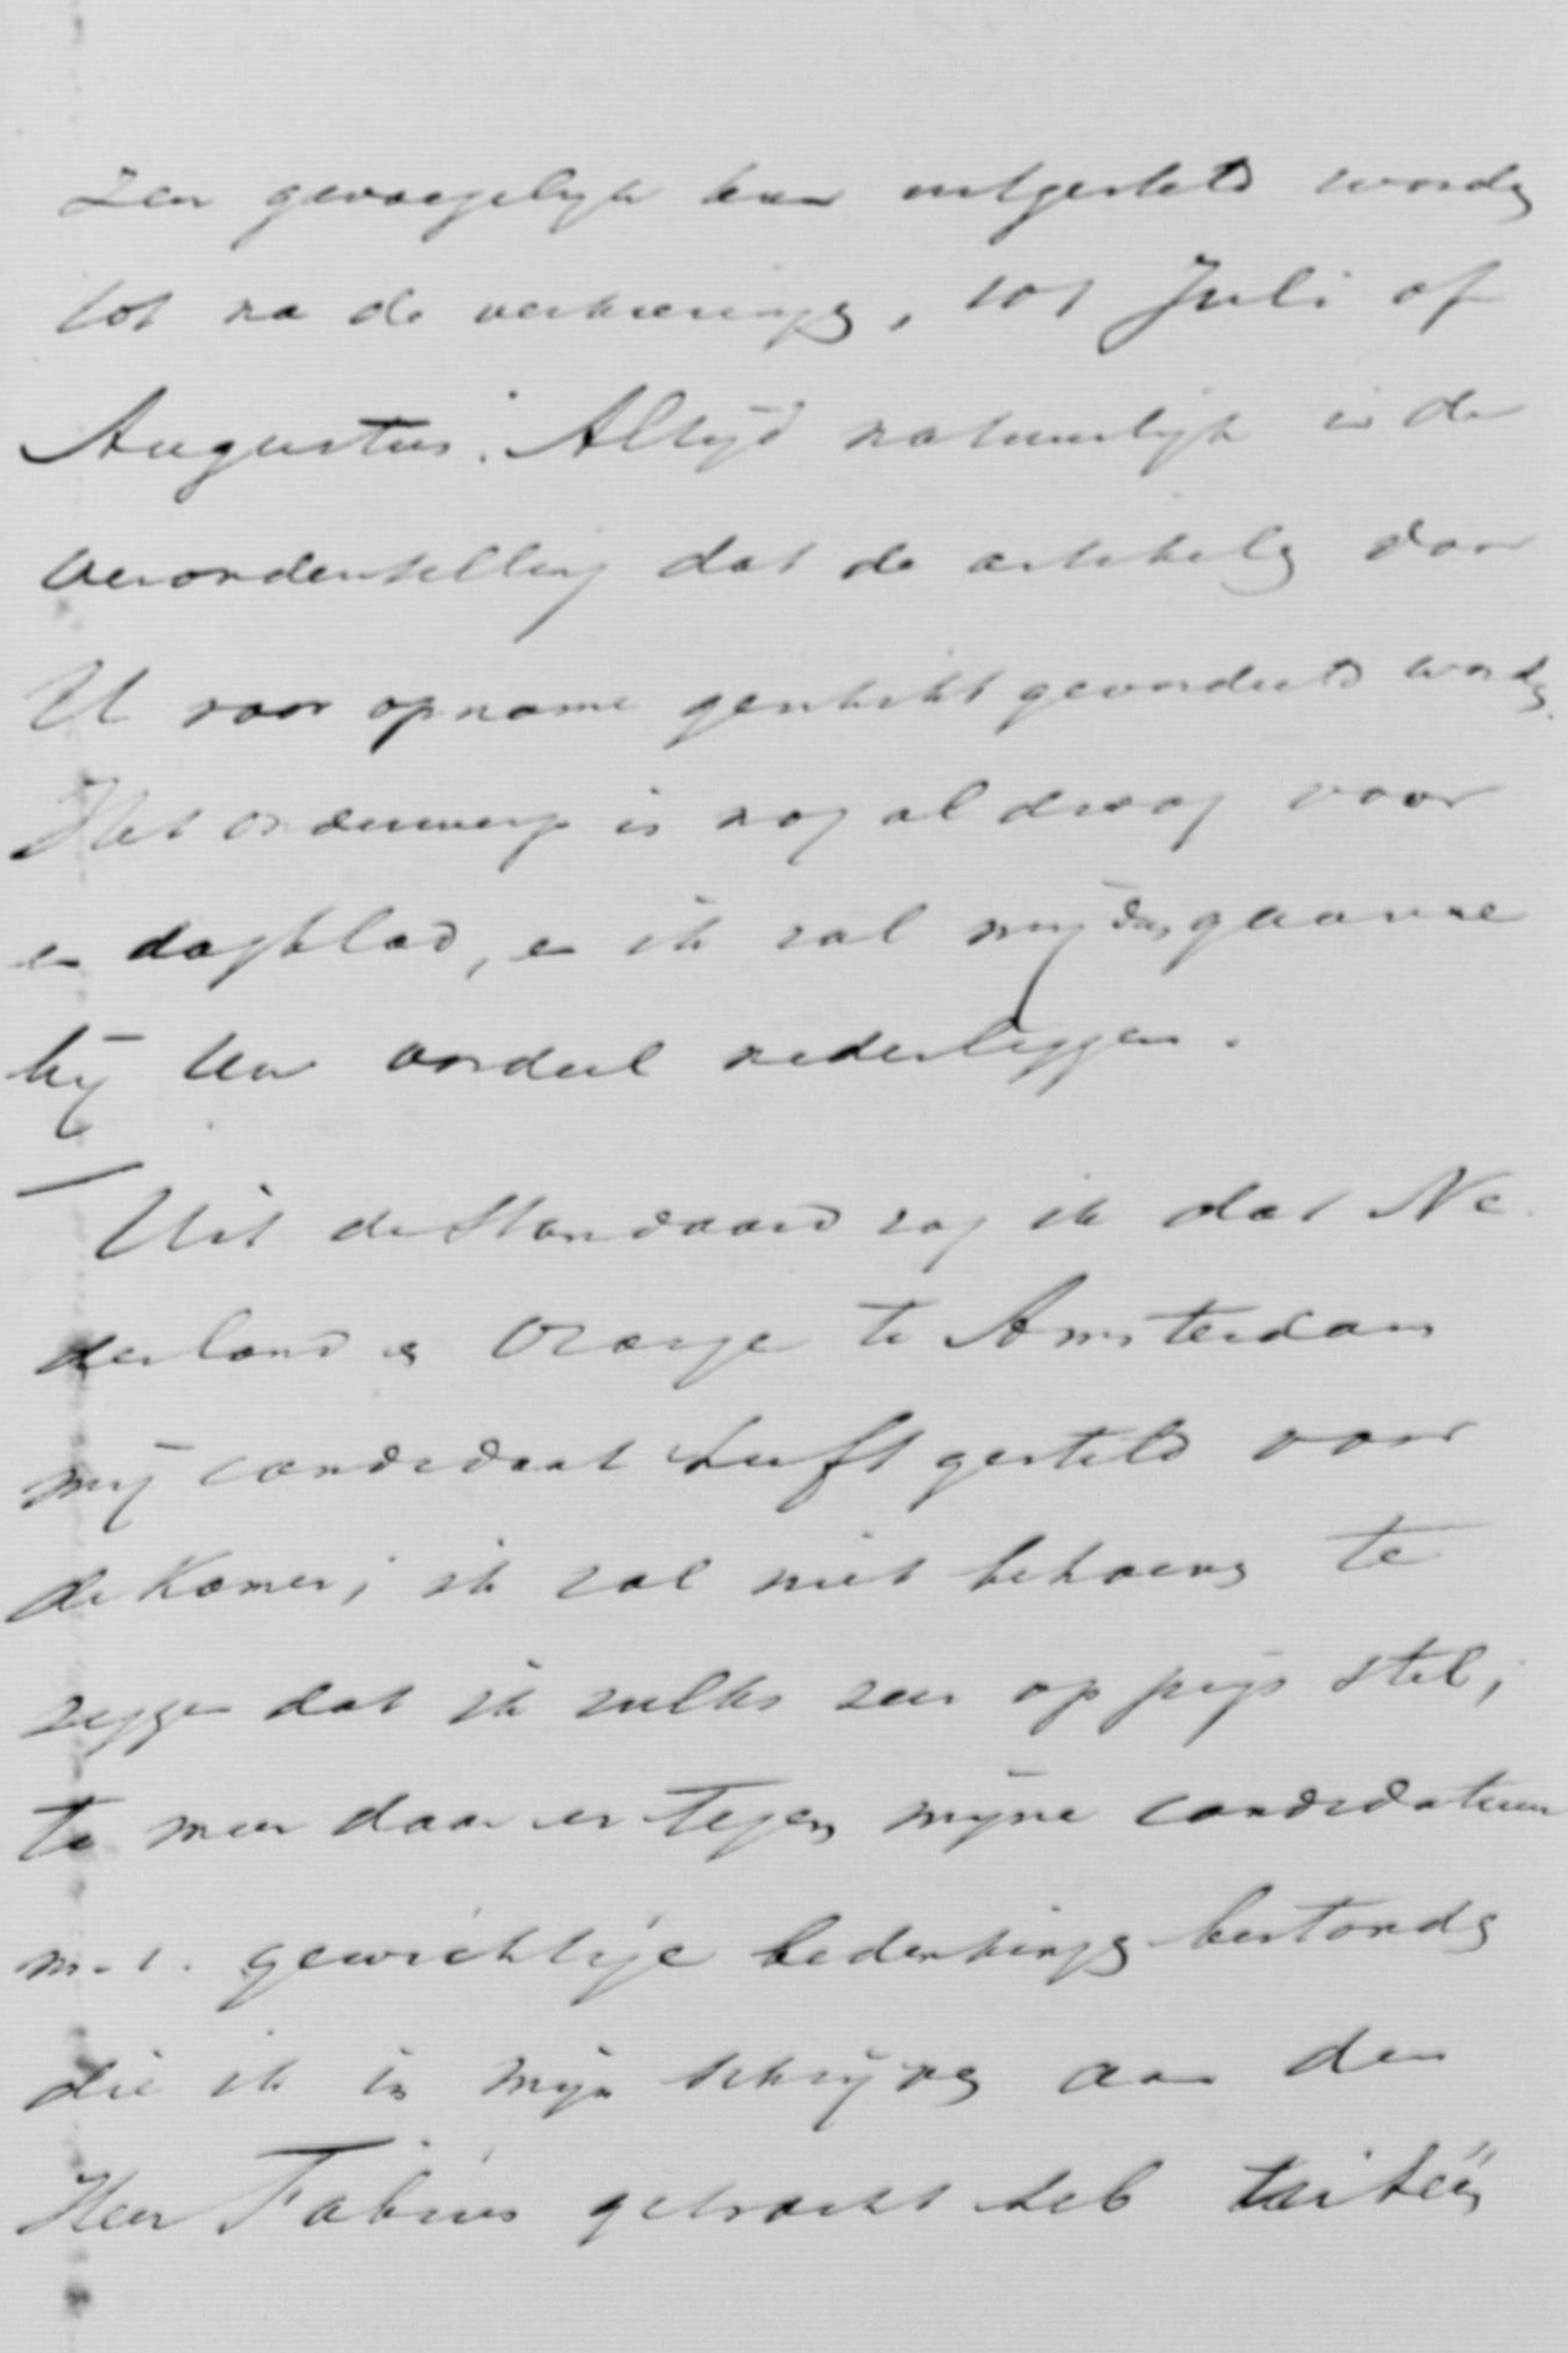 zeer gevoegelijk kan uitgesteld worden
tot na de verkiezingen, tot Juli of
Augustus. Altijd natuurlijk in de
veronderstelling dat de artikelen door
U voor opname geschikt geoordeeld worden.
Het onderwerp is nog al droog voor
een dagblad, en ik zal mij dus gaarne
bij Uw oordeel nederleggen.
Uit de Standaard zag ik dat Ne
derland en Oranje te Amsterdam
mij candidaat heeft gesteld voor
de Kamer; ik zal niet behoeven te
zeggen dat ik zulks zeer op prijs stel;
te meer daar er tegen mijne candidatuur
m.i. gewichtige bedenkingen bestonden
die ik in mijn schrijven aan den
Heer Fabius getracht heb